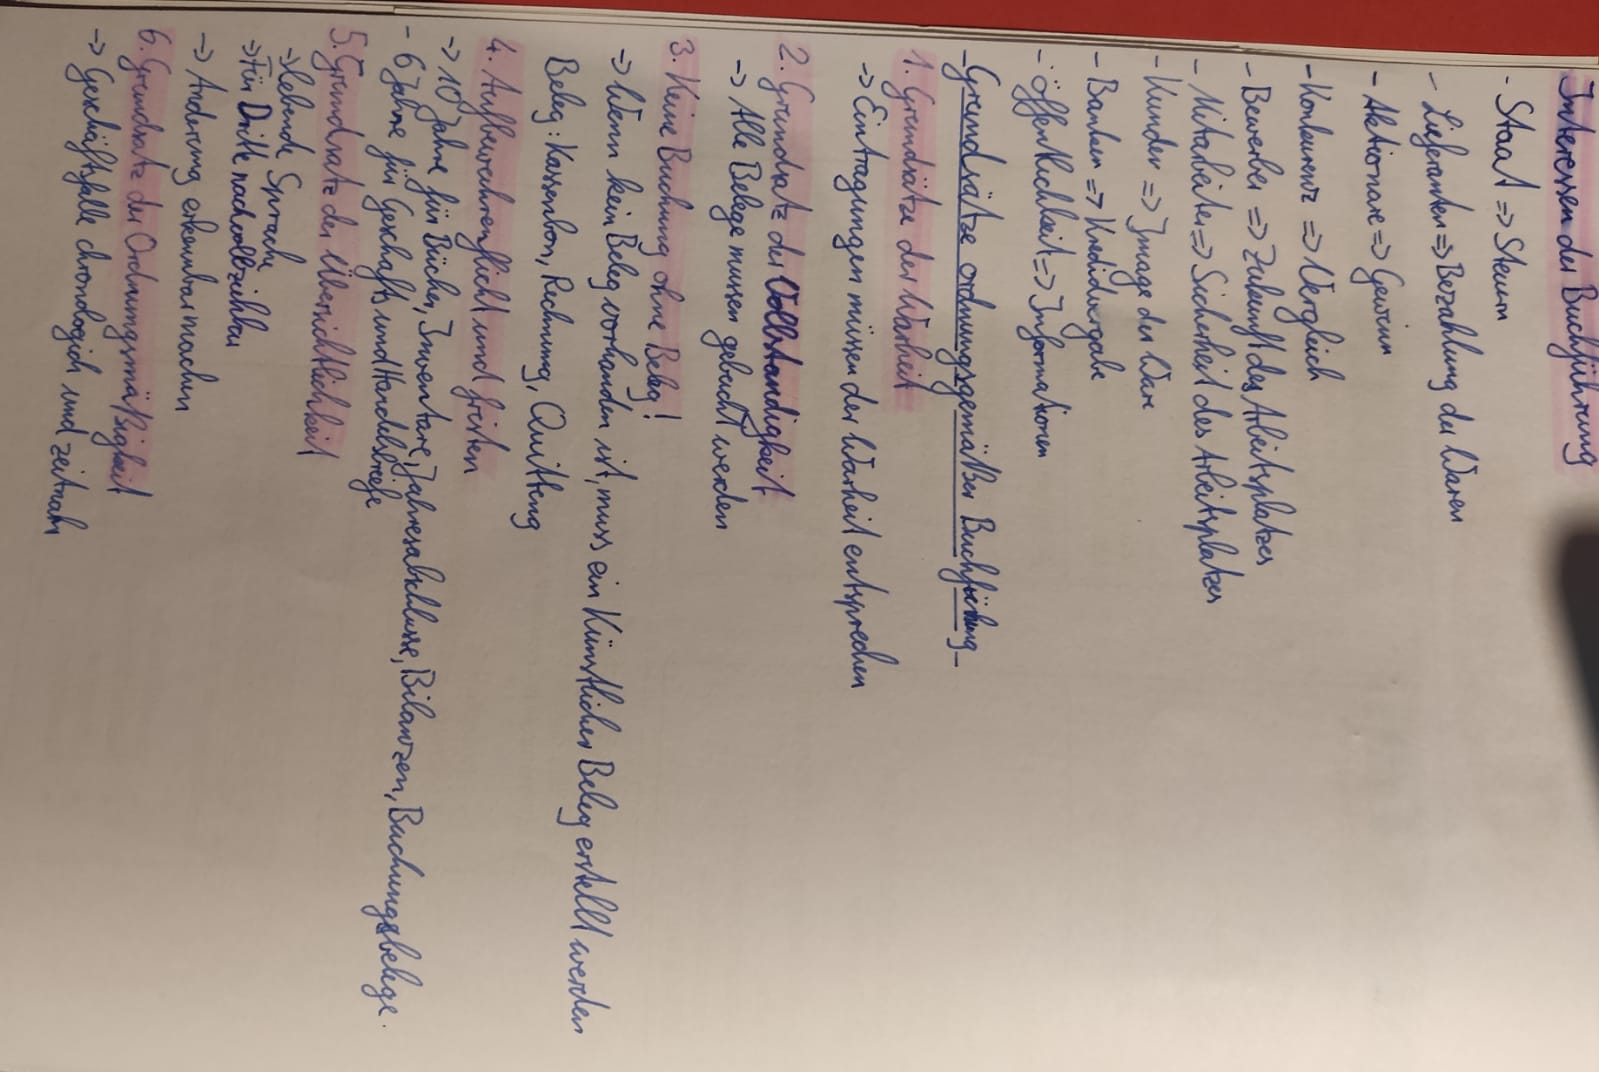 Interessen der Buchführung
- Staat => Steuern
- Lieferanten => Bezahlung der Waren
- Aktionäre => Gewinn
- Konkurenz => Vergleich
- Bewerber => Zukunft des Arbeitsplatzes
- Mitarbeiter => Sicherheit des Arbeitsplatzes
- Kunden => Image der Ware
- Banken => Kreditvergabe
- Öffentlichkeit => Informationen
- Grundsätze ordnungsgemäßer Buchführung -
1. Grundsätze der Warheit
=> Eintragungen müssen der Warheit entsprechen
2. Grundsatz der Vollständigkeit
=> Alle Belege müssen gebucht werden
3. Keine Buchung ohne Beleg!
=> Wenn kein Beleg vorhanden ist, muss ein Künstlicher Beleg erstellt werden
Beleg: Kassenbon, Rechnung, Quittung
4. Aufbewahrenpflicht und fristen
=> 10 Jahre für Bücher, Inventare, Jahresabschlüsse, Bilanzen, Buchungsbelege.
- 6 Jahre für Geschäfts und Handelsbriefe
5. Grundsatz der Übersichtlichkeit
=> lebende Sprache
=> Für Dritte nachvollziehbar
=> Änderung erkennbar machen
6. Grundsatz der Ordnungsmäßigkeit
=> Geschäftsfälle chronologisch und zeitnah